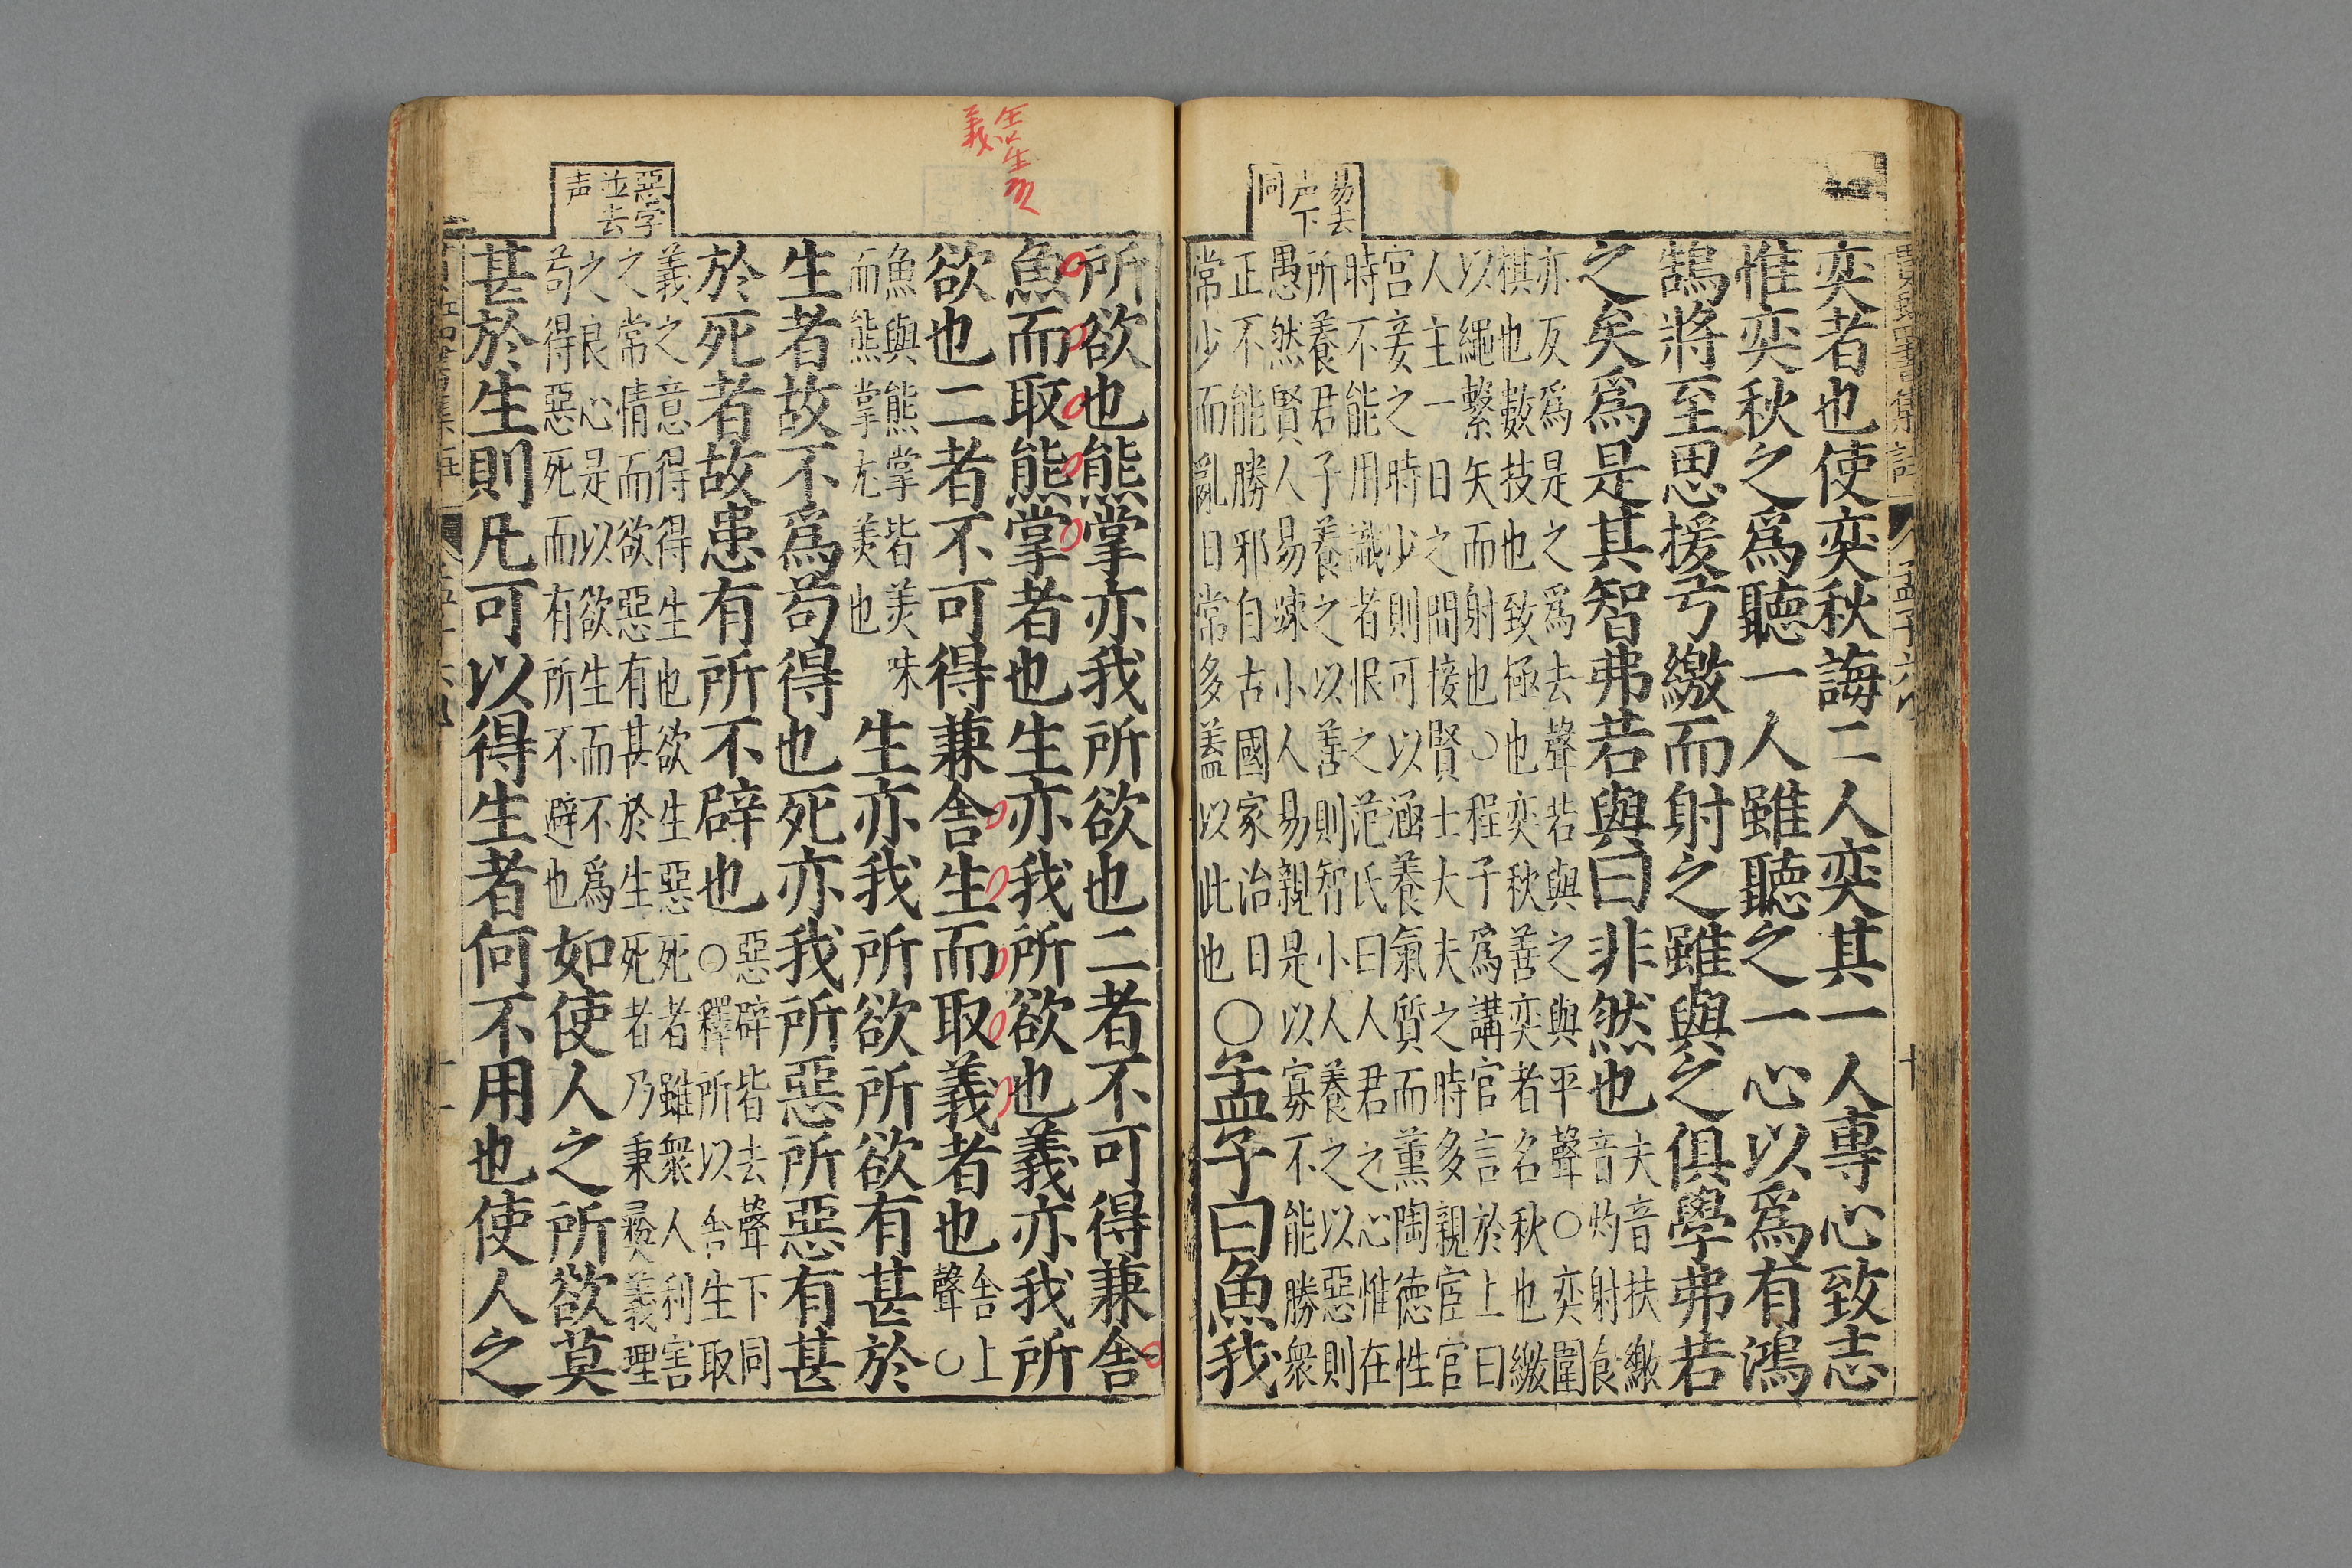 易去
声下
同
奕者也使奕秋誨二人奕其一人專心致志
惟奕秋之爲聽一人雖聽之一心以爲有鴻
鵠將至思援弓繳而射之雖與之俱學弗若
之矣爲是其智弗若與曰非然也
夫音扶繳
音灼射食
亦反爲是之爲去聲若與之與平聲○奕圍
棋也數技也致極也奕秋善奕者名秋也繳
以繩繫矢而射也○程子爲講官言於上曰
人主一日之間接賢士大夫之時多親宦官
宮妾之時少則可以涵養氣質而薰陶德性
時不能用識者恨之范氏曰人君之心惟在
所養君子養之以善則智小人養之以惡則
愚然賢人易踈小人易親是以寡不能勝衆
正不能勝邪自古國家治日
常少而亂日常多蓋以此也
○孟子曰魚我
生
義
惡字
並去
声
所欲也熊掌亦我所欲也二者不可得兼舍
魚而取熊掌者也生亦我所欲也義亦我所
欲也二者不可得兼舍生而取義者也
舍上
聲○
魚與熊掌皆美味
而熊掌尤美也
生亦我所欲所欲有甚於
生者故不爲苟得也死亦我所惡所惡有甚
於死者故患有所不辟也
惡辟皆去聲下同
○釋所以舍生取
義之意得得生也欲生惡死者雖衆人利害
之常情而欲惡有甚於生死者乃秉彛義理
之良心是以欲生而不爲
苟得惡死而有所不避也
如使人之所欲莫
甚於生則凡可以得生者何不用也使人之